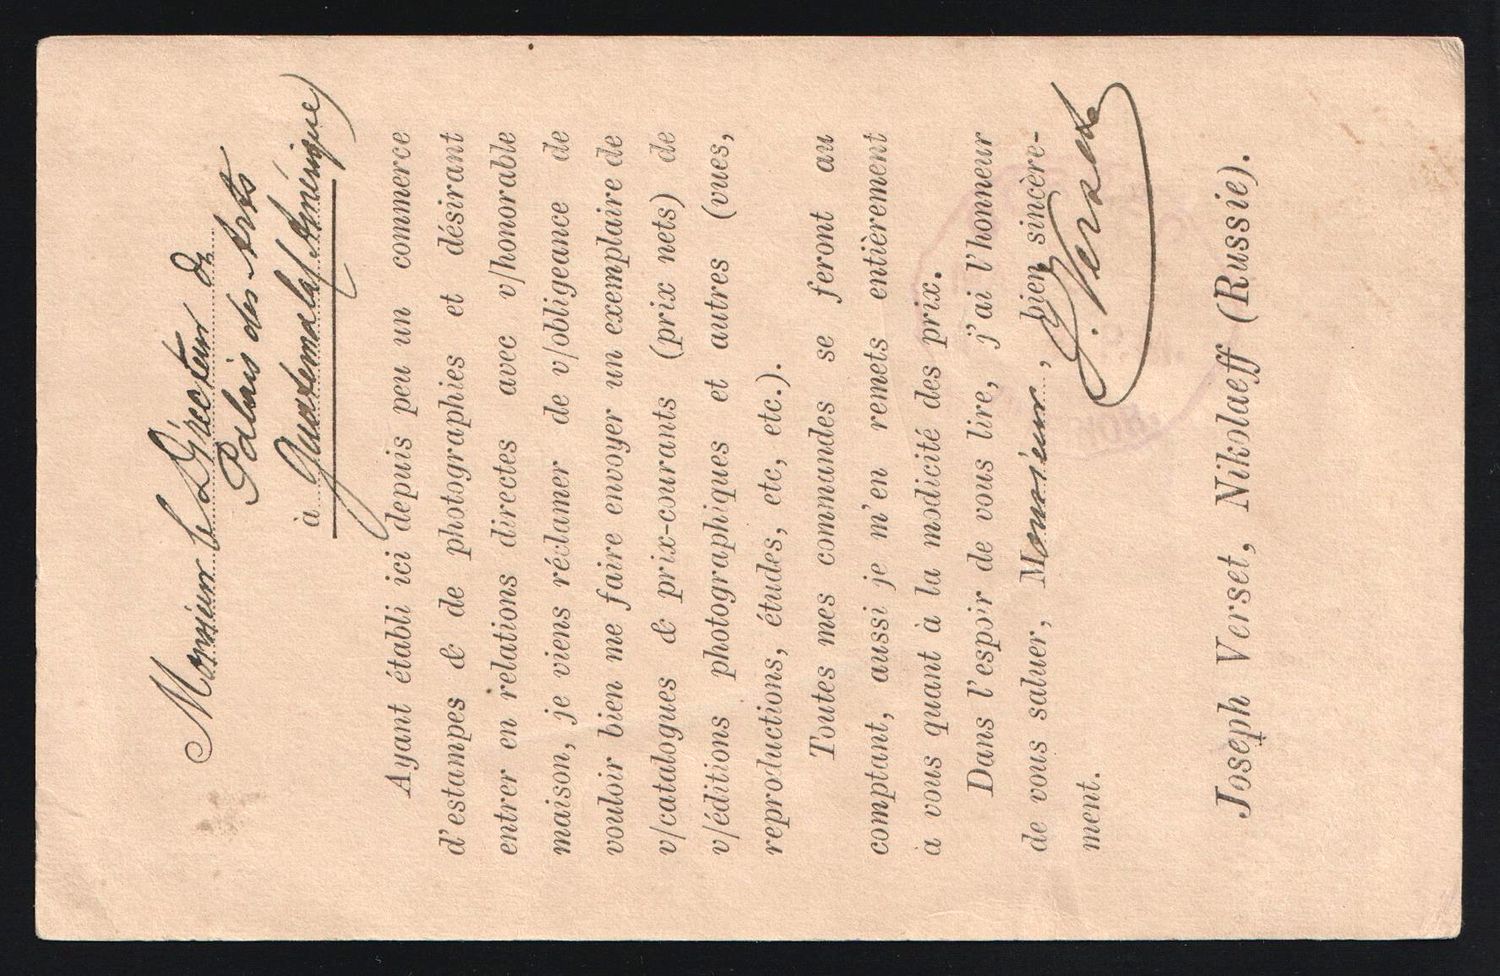 Monsieur le Directeur du
Palais des Arts
à Guatemala (Amérique)
Ayant établi ici depuis peu un commerce
d'estampes & de photographies et désirant
entrer en relations directes avec v/honorable
maison, je viens réclamer de v/obligeance de
vouloir bien me faire envoyer un exemplaire de
v/catalogues & prix-courants (prix nets) de
v/éditions photographiques et autres (vues,
reproductions, études, etc, etc.).
Toutes mes commandes se feront au
comptant, aussi je m'en remets entièrement
à vous quant à la modicité des prix.
Dans l'espoir de vous lire, j'ai l'honneur
de vous saluer, Monsieur, bien sincère-
ment.
J. Verset
Joseph Verset, Nikolaeff (Russie).